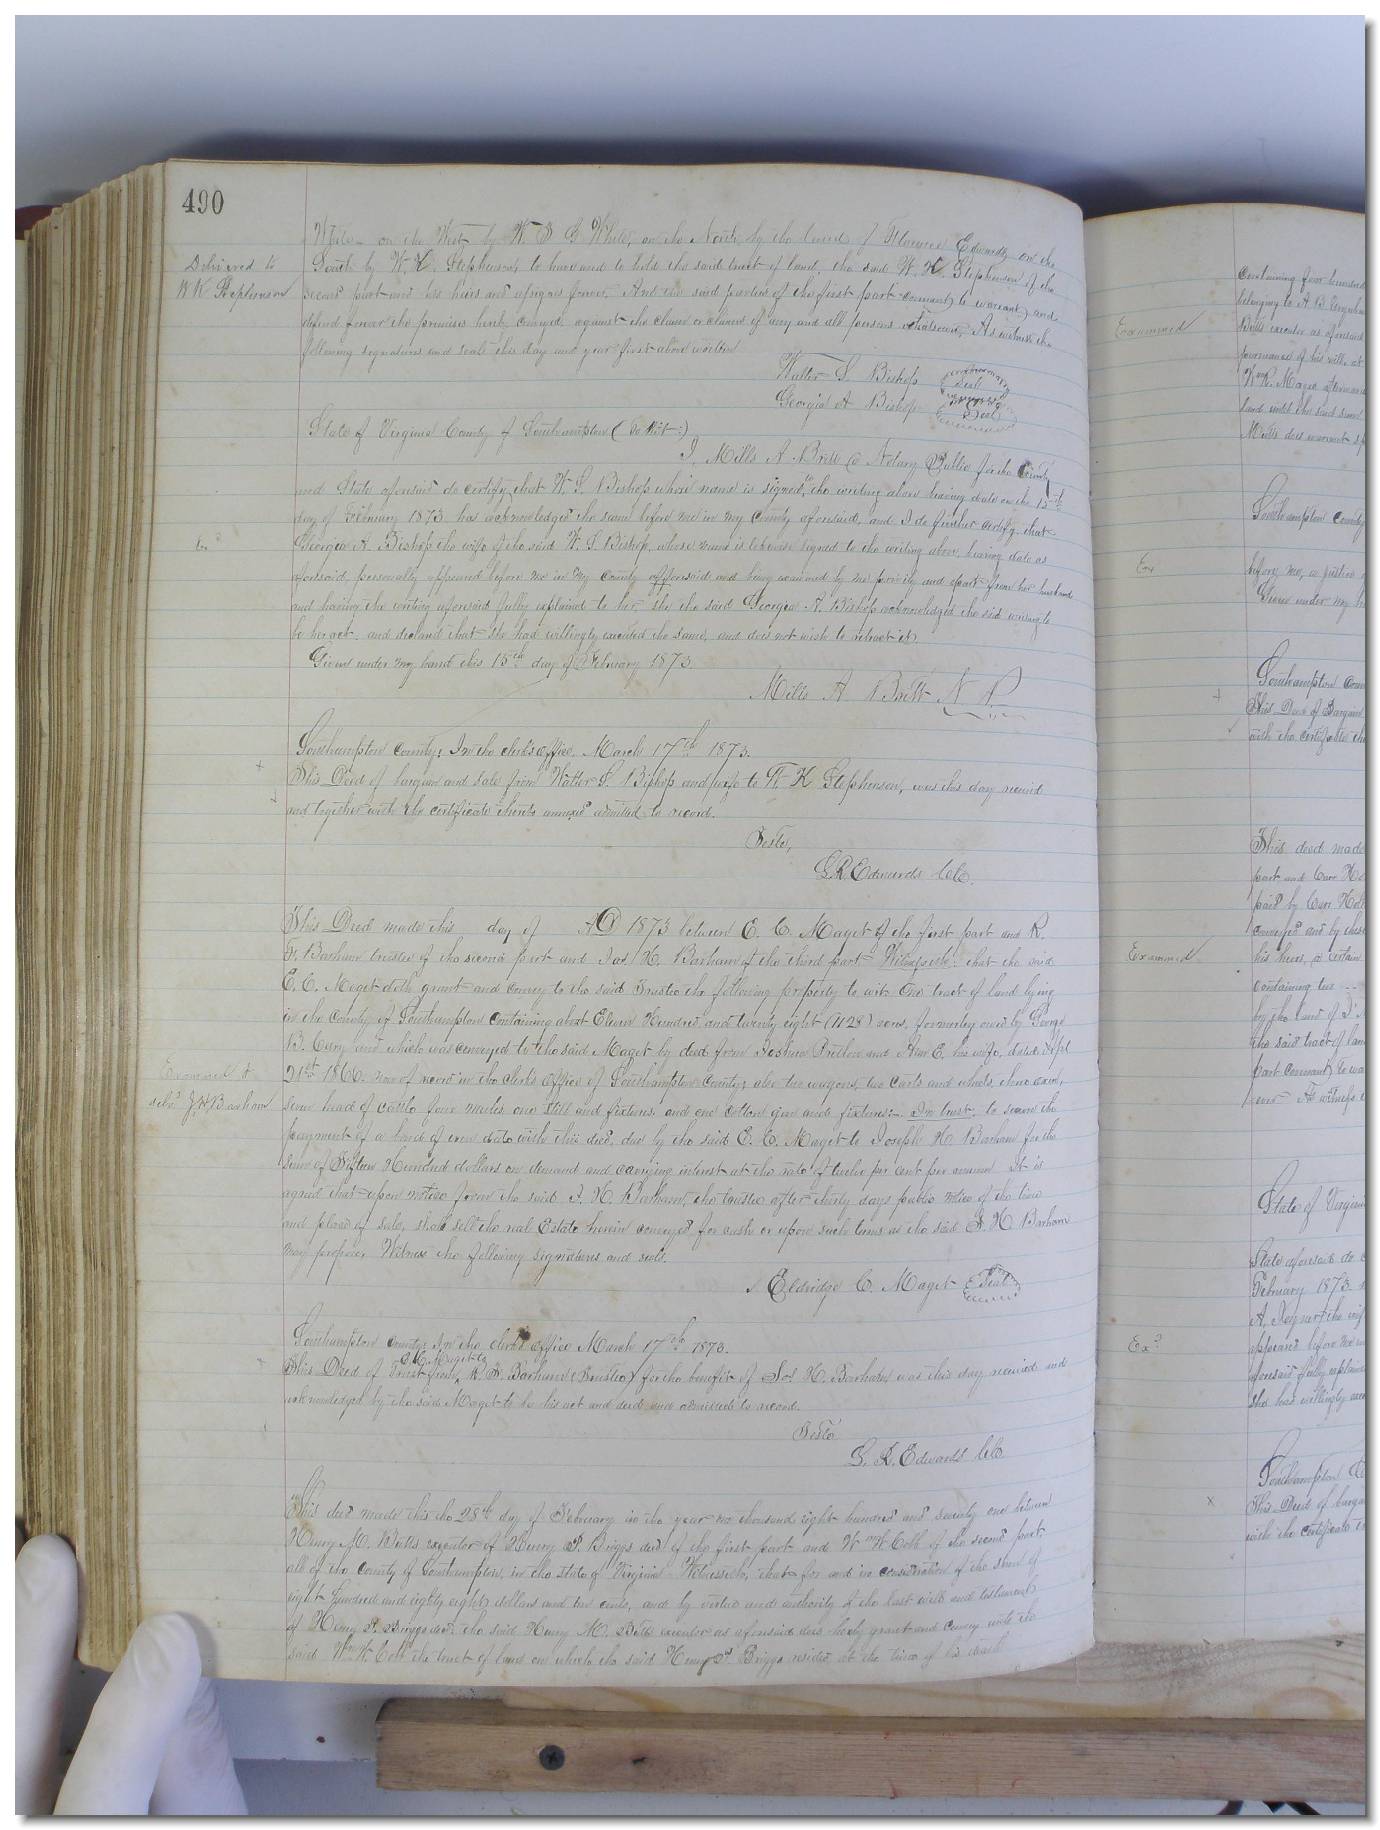 490
White on the West by W. S. G. White, on the North, by the land of Florence Edwards, on the
Delivered to
South by W. K. Stephenson, to have and to hold the said tract of land, the said W. K. Stephenson of the
W K Stephenson
second part and his heirs and assigns forever. And the said parties of the first part covenant to warrant and
defend forever the premises hereby conveyed against the claim or claims of any and all persons whatsoever. As witness the
following signatures and seals this day and year first above written
Walter S Bishop Seal
Georgia A Bishop Seal
State of Virginia County of Southampton (To Wit:)
I, Mills A Britt a Notary Public for the County
and State aforesaid do certify that W. S. Bishop whose name is signed to the writing above bearing date on the 15th
day of February 1873 has acknowledged the same before me in my county aforesaid, and I do further certify that
Ex
Georgia A. Bishop the wife of the said W. S. Bishop, whose name is likewise signed to the writing above, bearing date as
aforesaid, personally appeared before me in my county afforesaid and being examined by me privily and apart from her husband
and having the writing aforesaid fully explained to her, she the said Georgia A. Bishop acknowledged the said writing to
be her act, and declared that she had willingly executed the same, and does not wish to retract it
Given under my hand this 15th day of February 1873.
Mills A Britt N P
Southampton County: In the clerk's office March 17th 1873.
This Deed of bargain and sale from Walter S. Bishop and wife to W K Stephenson, was this day received
and together with the certificate thereto annexed admitted to record.
Teste,
L. R. Edwards C.C.
This Deed made this day of AD 1873 between E. C. Maget of the first part and R.
F. Barham trustee of the second part and Jos H. Barham of the third part Witnesseth: that the said
E. C. Maget doth grant and convey to the said Trustee the following property to wit: One tract of land lying
in the County of Southampton containing about Eleven Hundred and twenty eight (1128) acres, formerly owned by George
B. Cary and which was conveyed to the said Maget by deed from Joshua Pretlow and Ann E. his wife, dated Sept
Examined &
21st 1866. now of record in the clerk's office of Southampton county; also two wagons, two carts and wheels, three oxen,
deld J H Barham
seven head of cattle four mules one still and fixtures, and one cotton gin and fixtures:- In trust to secure the
payment of a bond of even date with this deed, due by the said E. C. Maget to Joseph H Barham for the
sum of Fifteen Hundred dollars on demand and carrying interest at the rate of twelve per cent per annum It is
agreed that upon notice from the said J. H. Barham, the trustee after thirty days public notice of the time
and place of sale, shall sell the real Estate herein conveyed, for cash or upon such terms as the said J. H Barham
may propose. Witness the following signatures and seals.
Eldridge C. Maget Seal
Southampton County: In the clerk's office March 17th 1873.
E. C. Maget to
This Deed of Trust from R. F. Barham (Trustee) for the benefit of Jos H. Barham was this day received and
acknowledged by the said Maget to be his act and deed and admitted to record.
Teste
L. R. Edwards CC
This deed made this the 28th day of February in the year one thousand eight hundred and seventy one between
Henry M. Butts executor of Henry P. Briggs decd of the first part and Wm H. Cobb of the second part
all of the county of Southampton, in the state of Virginia Witnesseth, that for and in consideration of the sum of
eight hundred and eighty eight dollars and ten cents, and by virtue and authority of the last will and testament
of Henry P. Briggs decd. the said Henry M. Butts executor as aforesaid does hereby grant and convey unto the
said Wm H. Cobb the tract of land on which the said Henry P. Briggs resided at the time of his death
containing four hundred
belonging to A. B.
Examined
Butts executor as aforesaid
pursuance of his will, at
land until the said
Butts does warrant
Southampton County
Ex
before me, a justice
Given under my
Southampton Coun
This Deed of Bargain
with the certificate the
This deed made
part and
paid by
conveyed and by these
Examined
his heirs, a certain
containing two
by the land of
the said tract of lan
part covenant to wa
ever As witness
State of Virginia
State aforesaid do c
February 1873
Exd
appeared before me
aforesaid fully explained
she has willingly exec
Southampton Co
This Deed of barga
with the certificate